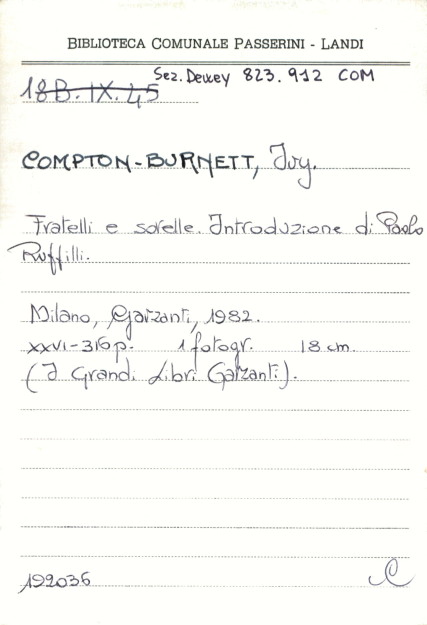 BIBLIOTECA COMUNALE PASSERINI - LANDI
Sez. Dewey 823.912 COM
18B.IX.45
COMPTON-BURNETT, Ivy.
Fratelli e sorelle. Introduzione di Paolo
Ruffilli.
Milano, Garzanti, 1982.
XXVI-316 p. 1 fotogr. 18 cm.
(I Grandi Libri Garzanti).
192036 C